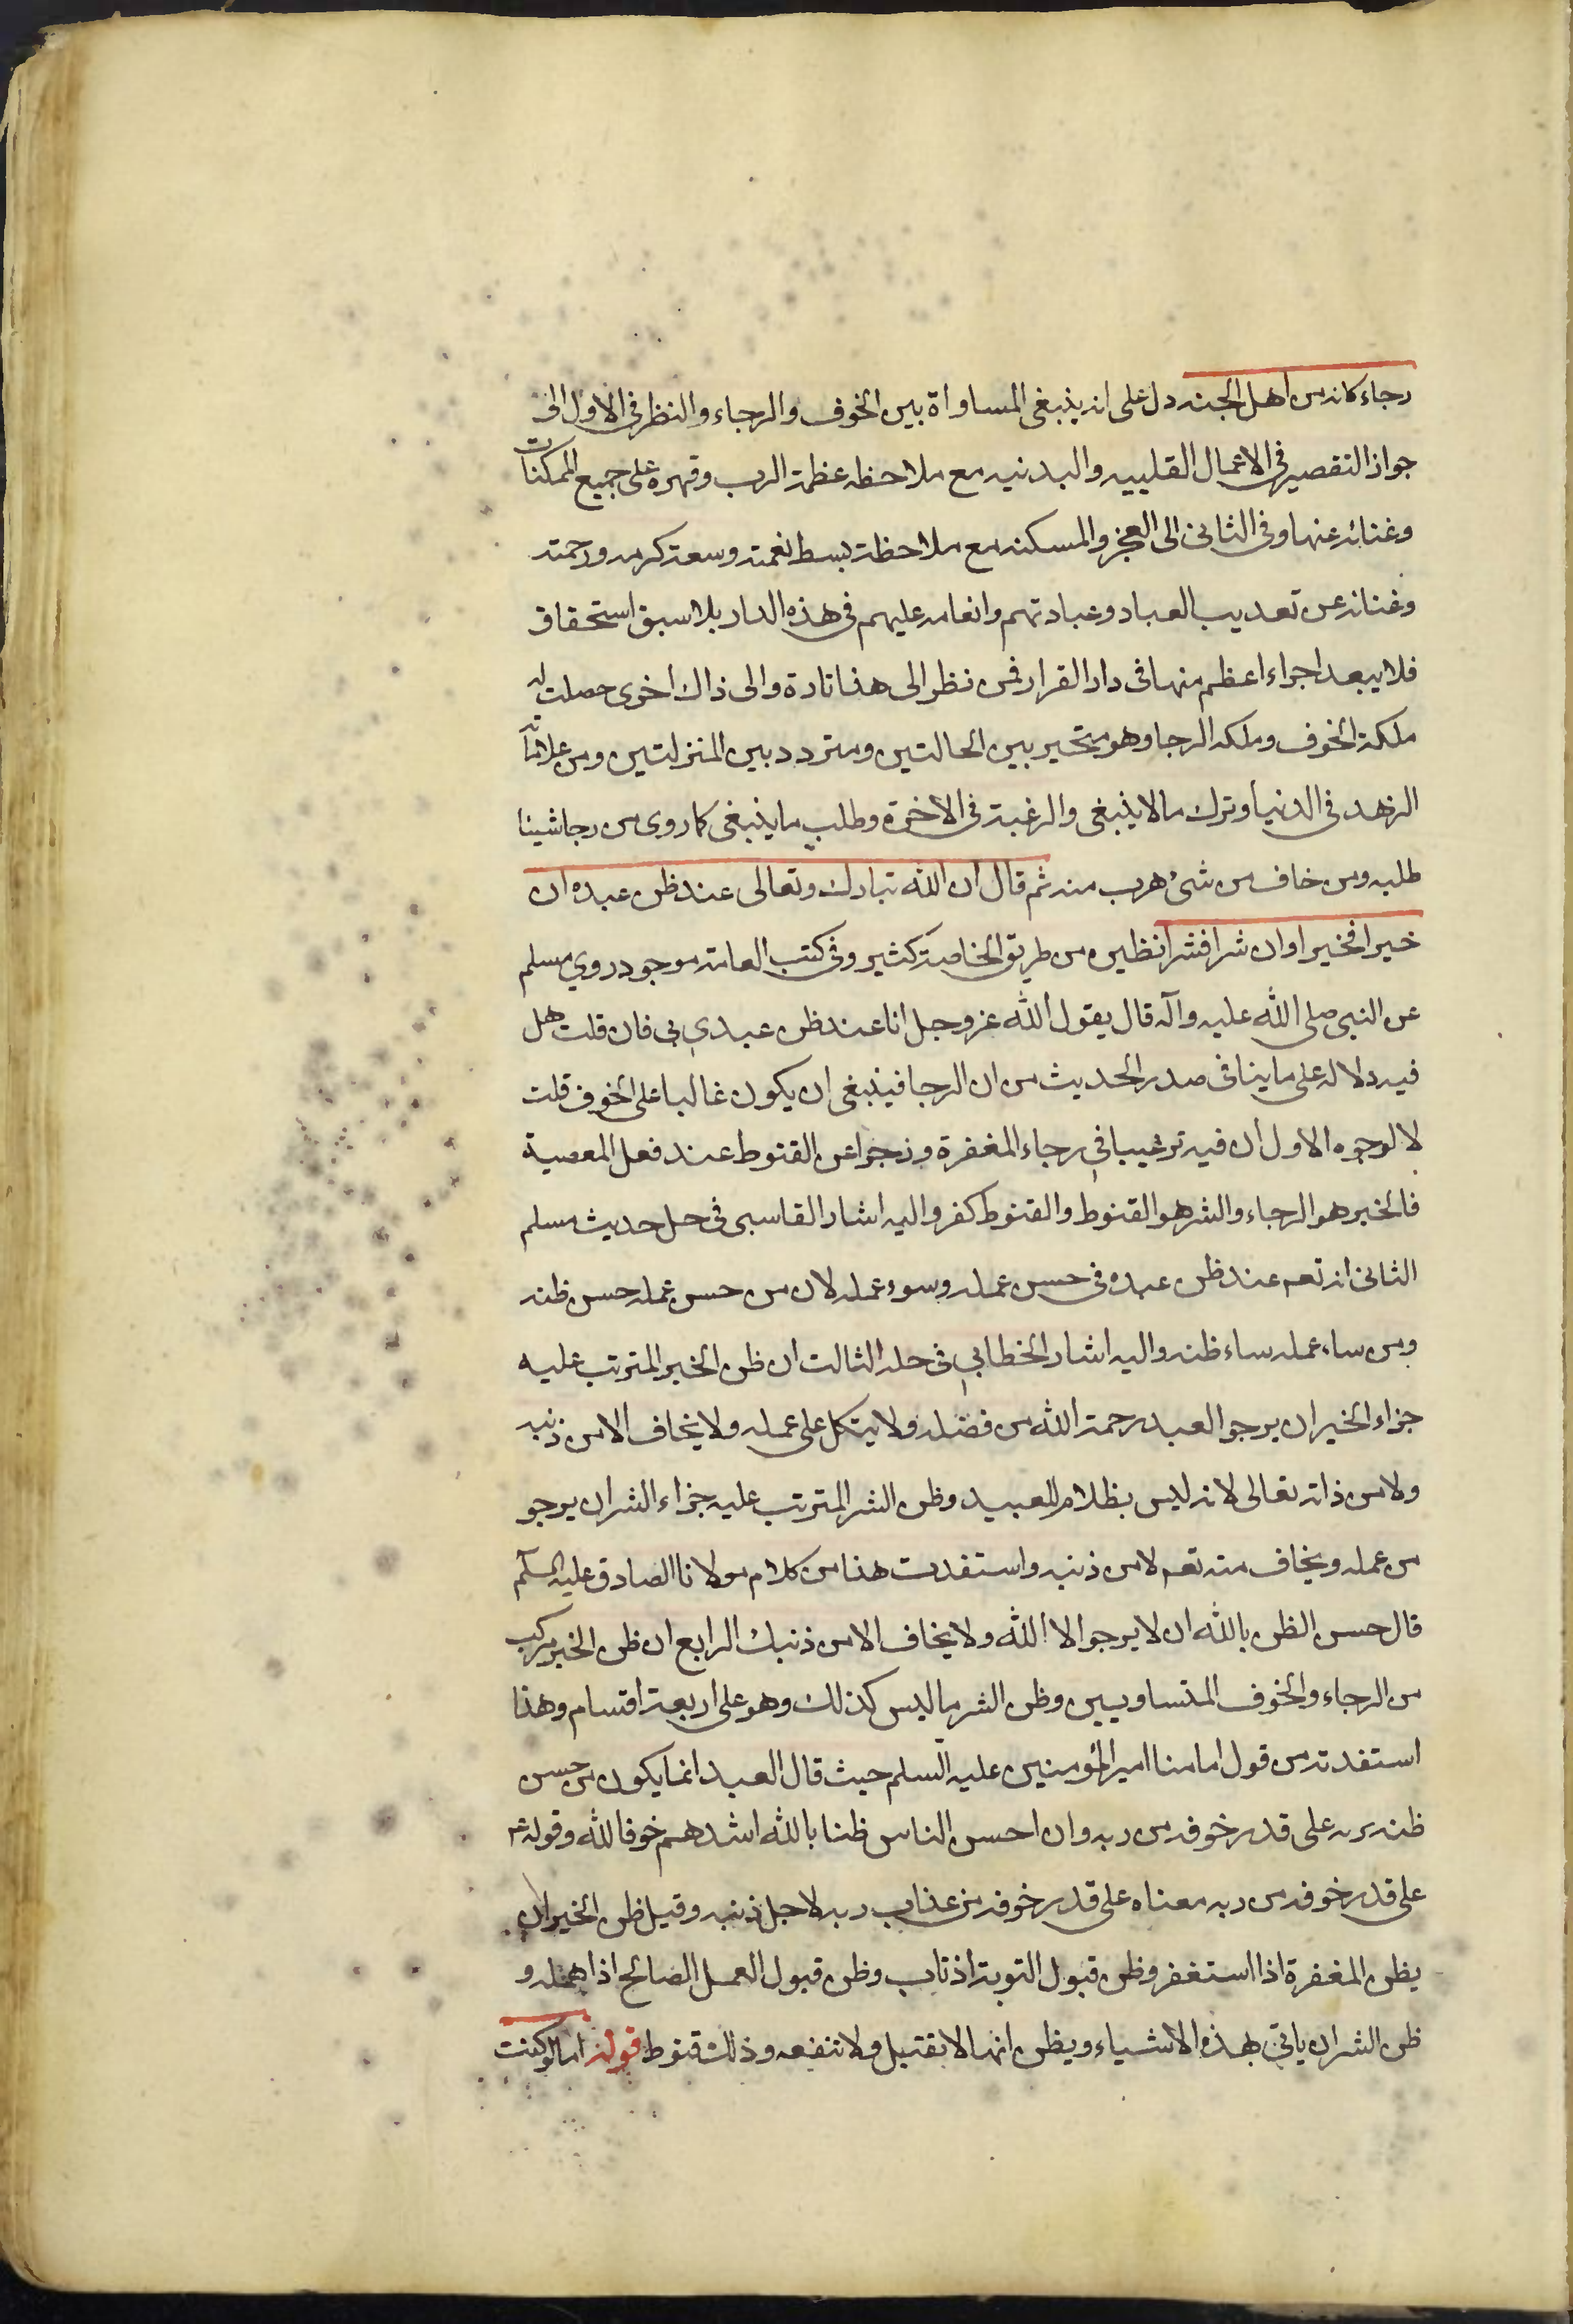 رجاء كانه من اهل الجنه دل على انه ينبغى المساواة بين الخوف والرجاء والنظر فى الاول الى
جواز التقصير فى الاعمال القلبيه والبدنيه مع ملاحظه عظمة الرب وقهره على جميع الممكنات
وغنائه عنها وفى الثانى الى العجز والمسكنه مع ملاحظة بسط نعمته وسعة كرمه ورحمته
وغنائه عن تعذيب العباد وعبادتهم وانعامه عليهم فى هذه الدار بلا سبق استحقاق
فلا يبعد اجراء اعظم منها فى دار القرار فمن نظر الى هذا تارة والى ذاك اخرى حصلت له
ملكة الخوف وملكه الرجا وهو متحير بين الحالتين ومتردد بين المنزلتين ومن علاماته
الزهد فى الدنيا وترك ما لا ينبغى والرغبة فى الاخرة وطلب ما ينبغى كما روى من رجا شيئا
طلبه ومن خاف من شئ هرب منه ثم قال ان الله تبارك وتعالى عند ظن عبده ان
خيرا فخيرا وان شرا فشرا نظيره من طريق الخاصة كثير وفى كتب العامة موجود روي مسلم
عن النبى صلى الله عليه وآله قال يقول الله عز وجل انا عند ظن عبدي بي فان قلت هل
فيه دلاله على ما ينافى صدر الحديث من ان الرجا فينبغى ان يكون غالبا على الخوف قلت
لا لوجوه الاول ان فيه ترغيبا فى رجاء المغفرة وزجرا عن القنوط عند فعل المعصية
فالخير هو الرجاء والشر هو القنوط والقنوط كفر واليه اشار القاسبى فى حل حديث مسلم
الثانى انه تعم عند ظن عبده فى حسن عمله وسوء عمله لان من حسن عمله حسن ظنه
ومن ساء عمله ساء ظنه واليه اشار الخطابي فى حله الثالث ان ظن الخير المترتب عليه
جزاء الخير ان يرجو العبد رحمة الله من فضله ولا يتكل على عمله ولا يخاف الا من ذنبه
ولا من ذاته تعالى لانه ليس بظلام للعبيد وظن الشر المترتب عليه جزاء الشر ان يرجو
من عمله ويخاف منه تعم لا من ذنبه واستفدت هذا من كلام مولانا الصادق عليه السلم
قال حسن الظن بالله ان لا يرجو الا الله ولا يخاف الا من ذنبك الرابع ان ظن الخير مركب
من الرجاء والخوف المتساويين وظن الشر ما ليس كذلك وهو على اربعة اقسام وهذا
استفدته من قول امامنا امير المؤمنين عليه السلم حيث قال العبد انما يكون من حسن
ظنه بربه على قدر خوفه من ربه وان احسن الناس ظنا بالله اشدهم خوفا لله وقوله عم
على قدر خوفه من ربه معناه على قدر خوفه من عذاب ربه لاجل ذنبه وقيل ظن الخير ان
يظن المغفرة اذا استغفر وظن قبول التوبة اذ تاب وظن قبول العمل الصالح اذا عمله و
ظن الشر ان ياتى بهذه الاشياء ويظن انها لا تقتبل ولا تنفعه وذلك قنوط قوله اما لو كنت